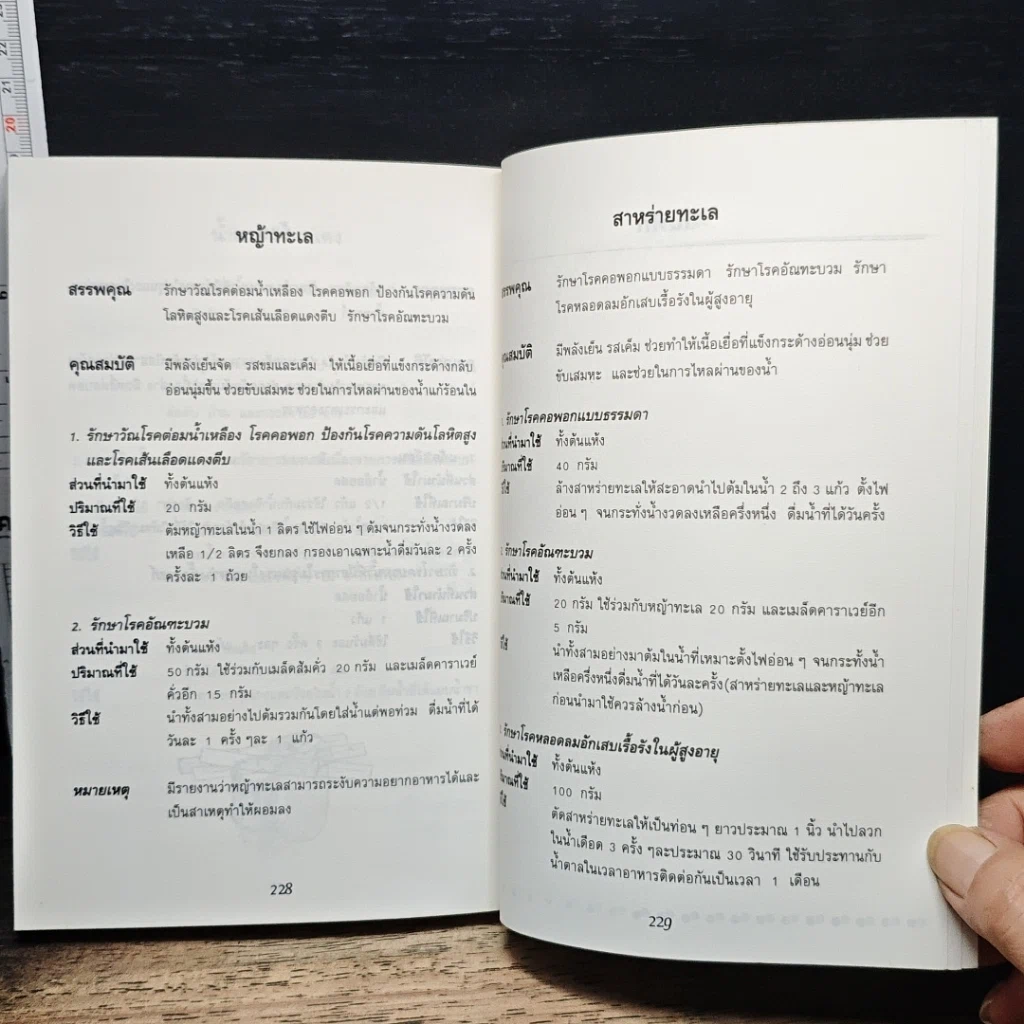 หญ้าทะเล
สรรพคุณ รักษาวัณโรคต่อมน้ำเหลือง โรคคอพอก ป้องกันโรคความดัน
โลหิตสูงและโรคเส้นเลือดแดงตีบ รักษาโรคอัณฑะบวม
คุณสมบัติ มีพลังเย็นจัด รสขมและเค็ม ให้เนื้อเยื่อที่แข็งกระด้างกลับ
อ่อนนุ่มขึ้น ช่วยขับเสมหะ ช่วยในการไหลผ่านของน้ำแก้ร้อนใน
1. รักษาวัณโรคต่อมน้ำเหลือง โรคคอพอก ป้องกันโรคความดันโลหิตสูง
และโรคเส้นเลือดแดงตีบ
ส่วนที่นำมาใช้ ทั้งต้นแห้ง
ปริมาณที่ใช้ 20 กรัม
วิธีใช้ ต้มหญ้าทะเลในน้ำ 1 ลิตร ใช้ไฟอ่อน ๆ ต้มจนกระทั่งน้ำงวดลง
เหลือ 1/2 ลิตร จึงยกลง กรองเอาเฉพาะน้ำดื่มวันละ 2 ครั้ง
ครั้งละ 1 ถ้วย
2. รักษาโรคอัณฑะบวม
ส่วนที่นำมาใช้ ทั้งต้นแห้ง
ปริมาณที่ใช้ 50 กรัม ใช้ร่วมกับเมล็ดส้มคั่ว 20 กรัม และเมล็ดคาราเวย์
คั่วอีก 15 กรัม
วิธีใช้ นำทั้งสามอย่างไปต้มรวมกันโดยใส่น้ำแต่พอท่วม ดื่มน้ำที่ได้
วันละ 1 ครั้ง ๆละ 1 แก้ว
หมายเหตุ มีรายงานว่าหญ้าทะเลสามารถระงับความอยากอาหารได้และ
เป็นสาเหตุทำให้ผอมลง
228
สาหร่ายทะเล
รรพคุณ รักษาโรคคอพอกแบบธรรมดา รักษาโรคอัณฑะบวม รักษา
โรคหลอดลมอักเสบเรื้อรังในผู้สูงอายุ
ุณสมบัติ มีพลังเย็น รสเค็ม ช่วยทำให้เนื้อเยื่อที่แข็งกระด้างอ่อนนุ่ม ช่วย
ขับเสมหะ และช่วยในการไหลผ่านของน้ำ
รักษาโรคคอพอกแบบธรรมดา
่วนที่นำมาใช้ ทั้งต้นแห้ง
ริมาณที่ใช้ 40 กรัม
ใช้ ล้างสาหร่ายทะเลให้สะอาดนำไปต้มในน้ำ 2 ถึง 3 แก้ว ตั้งไฟ
อ่อน ๆ จนกระทั่งน้ำงวดลงเหลือครึ่งหนึ่ง ดื่มน้ำที่ได้วันครั้ง
รักษาโรคอัณฑะบวม
่วนที่นำมาใช้ ทั้งต้นแห้ง
ริมาณที่ใช้ 20 กรัม ใช้ร่วมกับหญ้าทะเล 20 กรัม และเมล็ดคาราเวย์อีก
5 กรัม
ใช้ นำทั้งสามอย่างมาต้มในน้ำที่เหมาะตั้งไฟอ่อน ๆ จนกระทั้งน้ำ
เหลือครึ่งหนึ่งดื่มน้ำที่ได้วันละครั้ง(สาหร่ายทะเลและหญ้าทะเล
ก่อนนำมาใช้ควรล้างน้ำก่อน)
รักษาโรคหลอดลมอักเสบเรื้อรังในผู้สูงอายุ
่วนที่นำมาใช้ ทั้งต้นแห้ง
ริมาณที่ใช้ 100 กรัม
ใช้ ตัดสาหร่ายทะเลให้เป็นท่อน ๆ ยาวประมาณ 1 นิ้ว นำไปลวก
ในน้ำเดือด 3 ครั้ง ๆละประมาณ 30 วินาที ใช้รับประทานกับ
น้ำตาลในเวลาอาหารติดต่อกันเป็นเวลา 1 เดือน
229